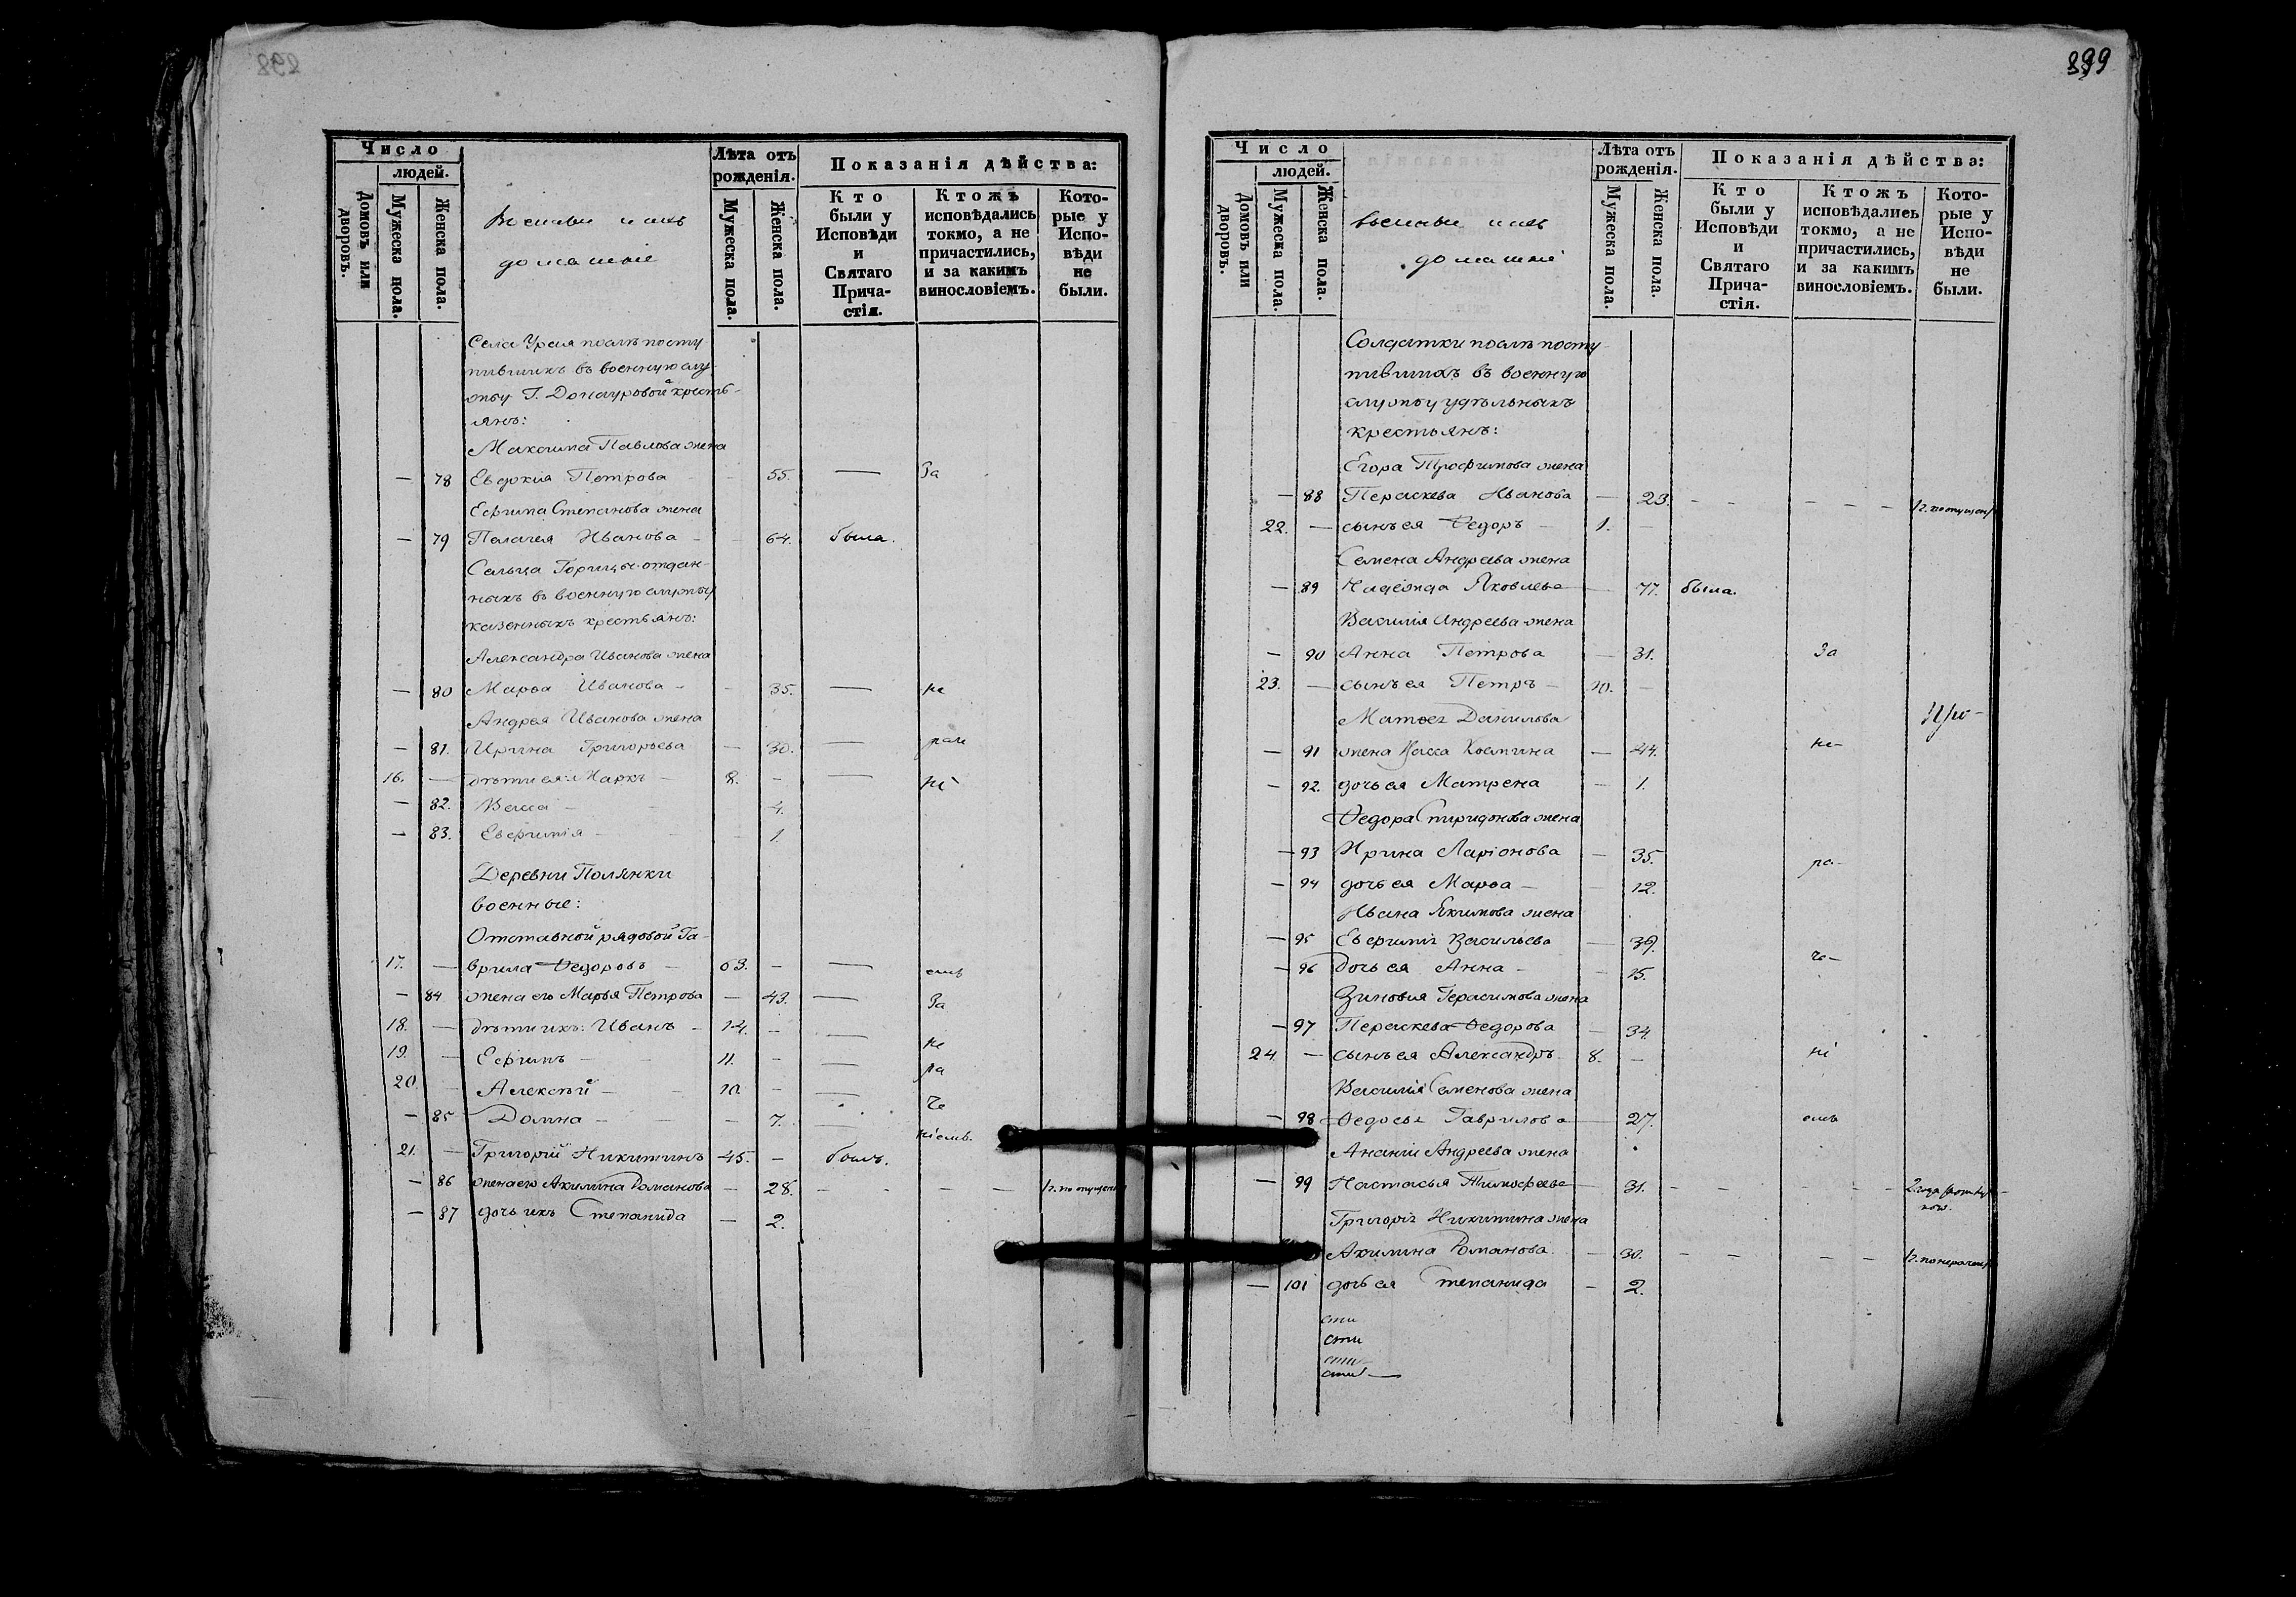 899
Число
людей.
Домовъ или дворовъ.
Мужеска пола.
Женска пола.
Военные и ихъ
домашніе
Лѣта отъ рожденія.
Мужеска пола.
Женска пола.
Показанія дѣйства:
Кто были у Исповѣди и Святаго Прича-стія.
Ктожъ исповѣдались токмо, а не причастились, и за какимъ винословіемъ.
Кото-рые у Испо-вѣди не были.
Села Урея поляъ посту
пившихъ въ военную слу
жбу Г. Донауровой кресть-
янъ:
Максима Павлова жена
— 78 Евдокия Петрова - - 55. — За
Ефима Степанова жена
— 79 Пелагея Иванова - 64. была.
Сельца Горицы отдан-
ныхъ въ военную службу
казенныхъ крестьянъ:
Александра Иванова жена
— 80 Марѳа Иванова - - 35. — не
Андрея Иванова жена
— 81. Ирина Григорьева — 30. —
16. — дѣти ея: Маркъ — 8. - — ні
— 82. Васса - 4.
— 83. Евфимія - - 1.
Деревни Полянки
военные:
Отставной рядовой Га-
17. — врила Ѳедоровъ — 63. - — емъ
— 84. жена его Марья Петрова — 43. — За
18. — дѣти ихъ: Иванъ - 14. - — не
19. — Ефимъ - 11. - — ра
20. — Алексѣй - 10. - — че
— 85 Домна - — 7. — ніемъ.
21. — Григорій Никитинъ 45. — былъ.
— 86 жена его Акилина Романова — 28. - - - — по опущен
— 87 дочь ихъ Степанида — 2.
Число
людей.
Домовъ или дворовъ.
Мужеска пола.
Женска пола.
военные и ихъ
домашніе
Лѣта отъ рожденія.
Мужеска пола.
Женска пола.
Показанія дѣйства:
Кто были у Исповѣди и Святаго Прича-стія.
Ктожъ исповѣдались токмо, а не причастились, и за какимъ винословіемъ.
Кото-рые у Испо-вѣди не были.
Солдатки посту-
пившихъ въ военную
службу удѣльныхъ
крестьянъ:
Егора Трофимова жена
— 88 Пераскева Иванова — 23. - - - - — по опущен
22. — сынъ ея Ѳедоръ — 1. —
Семена Андреева жена
— 89 Надежда Яковлева — 77. была.
Василія Андреева жена
— 90 Анна Петрова — 31. За
23. — сынъ ея Петръ — 10. —
Матвея Данилова
— 91 жена Васса Козмина — 44. не-
— 92. дочь ея Матрена — 1.
Ѳедора Спиридонова жена
— 93 Ирина Ларіонова — 35. ра-
— 94 дочь ея Марѳа — — 12.
Ивана Якимова жена
— 95 Евфимія Васильева — 39. че-
— 96 Дочь ея Анна - - 15.
Зиновия Герасимова жена
— 97 Пераскева Ѳедорова — 34.
24. — сынъ ея Александръ. 8. — ні
Василія Семенова жена
— 98 Ѳедосья Гаврилова — 27. емъ
Ананіи Андреева жена
— 99 Настасья Тимофеева — 31. - - - —
Григорія Никитина жена
Акилина Романова. — 30. - - - —
— 101 дочь ея Степанида — 2.
сти
сти
сти
сти —